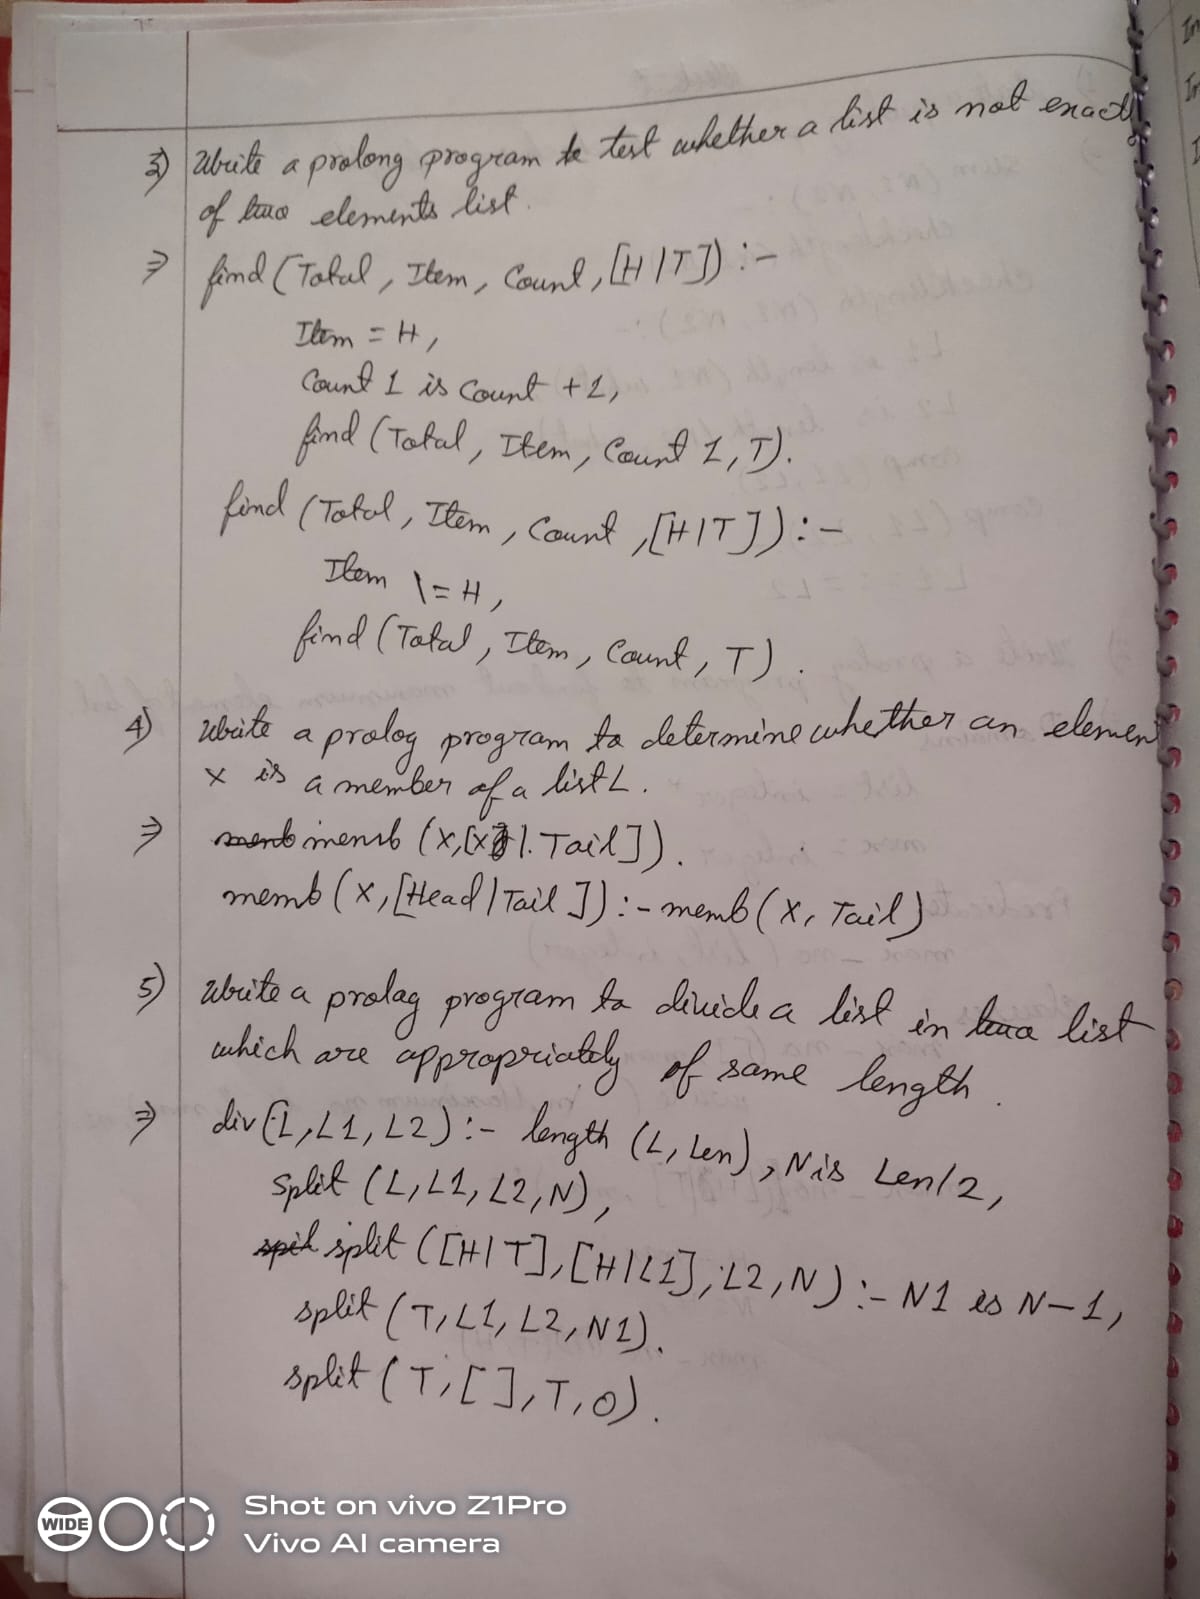 3) Write a prolong program to test whether a list is not exactly
of two elements list.
⇒ find (Total, Item, Count, [H|T]) :-
Item = H,
Count 1 is Count +1,
find (Total, Item, Count 1, T).
find (Total, Item, Count, [H|T]) :-
Item \= H,
find (Total, Item, Count, T).
4) Write a prolog program to determine whether an elemen
X is a member of a list L.
⇒ memb (X, [X|. Tail]).
memb (X, [Head|Tail]) :- memb (X, Tail)
5) Write a prolog program to divide a list in two list
which are appropriately of same length.
⇒ div (L, L1, L2) :- length (L, Len), N is Len/2,
split (L, L1, L2, N),
split ([H|T], [H|L1], L2, N) :- N1 is N-1,
split (T, L1, L2, N1).
split (T, [ ], T, 0).
WIDE Shot on vivo Z1Pro
Vivo AI camera